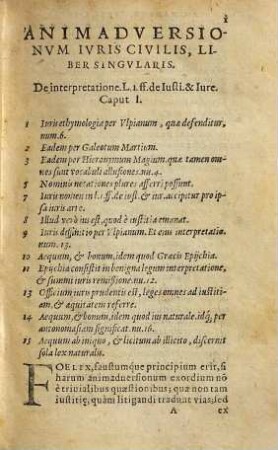 ANIMADVERSIO-
NVM IVRIS CIVILIS, LI-
BER SINGVLARIS.
De interpretatione. L. 1. ff. de Iusti. & Iure.
Caput I.
1 Iuris ethymologia per Vlpianum, quæ defenditur,
num. 6.
2 Eadem per Galeotum Martium.
3 Eadem per Hieronymum Magium. quæ tamen om-
nes sunt vocabuli allusiones. nu. 4.
5 Nominis notationes plures afferri possunt.
7 Iuris nomen in l. 1. ff. de iust. & iur. accipitur pro ip-
sa iuris arte.
8 Illud verò ius est, quod è iustitia emanat.
9 Iuris diffinitio per Vlpianum. Et eius interpretatio
num. 13.
10 Aequum, & bonum, idem quod Græcis Epijchia.
11 Epijchia consistit in benigna legum interpretatione,
& summi iuris remissione. nu. 12.
13 Officium iuris prudentis est, leges omnes ad iustiti-
am, & æquitatem referre.
14 Aequum, & bonum, idem quod ius naturale. idq́; per
antonomasiam significat. nu. 16.
15 Aequum ab iniquo, & licitum ab illicito, discernit
sola lex naturalis.
FOELIX, faustumque principium erit, si
harum animaduersionum exordium nõ
è triuialibus quæstionibus; quæ non tam
iustitię, quàm litigandi tradunt vias; sed
A ex